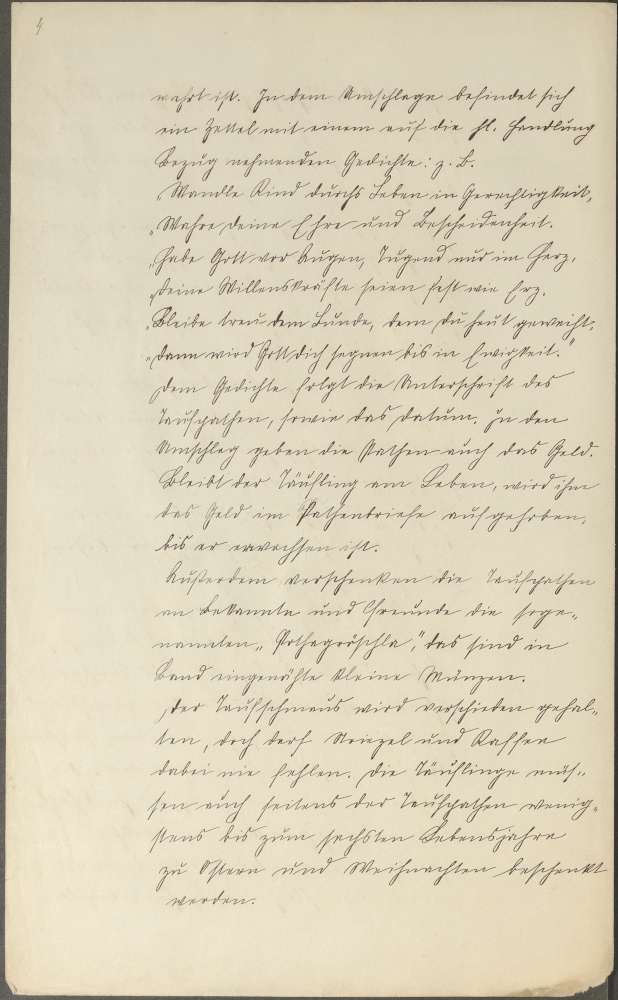 4
wahrt ist. In dem Umschlage befindet sich
ein Zettel mit einem auf die hl. Handlung
Bezug nehmenden Gedichte: z. B.
„Wandle Kind durchs Leben in Gerechtigkeit,
„Wahre deine Ehre und Bescheidenheit.
„Habe Gott vor Augen, Tugend nur im Herz,
„Deine Willenskräfte seien fest wie Erz.
„Bleibe treu dem Bunde, dem du heut geweiht,
„Dann wird Gott dich segnen bis in Ewigkeit."
Dem Gedichte folgt die Unterschrift des
Taufpathen, sowie das Datum. In den
Umschlag geben die Pathen auch das Geld.
Bleibt der Täufling am Leben, wird ihm
das Geld im Pathenbriefe aufgehoben,
bis er erwachsen ist.
Außerdem verschenken die Taufpathen
an Bekannte und Freunde die soge„
nannten „Pothagröschla", das sind in
Band eingenähte kleine Münzen.
Der Taufschmaus wird verschieden gehal„
ten, doch darf Striezel und Kaffee
dabei nie fehlen. Die Täuflinge müs„
sen auch seitens der Taufpathen wenig„
stens bis zum sechsten Lebensjahre
zu Ostern und Weihnachten beschenkt
werden.